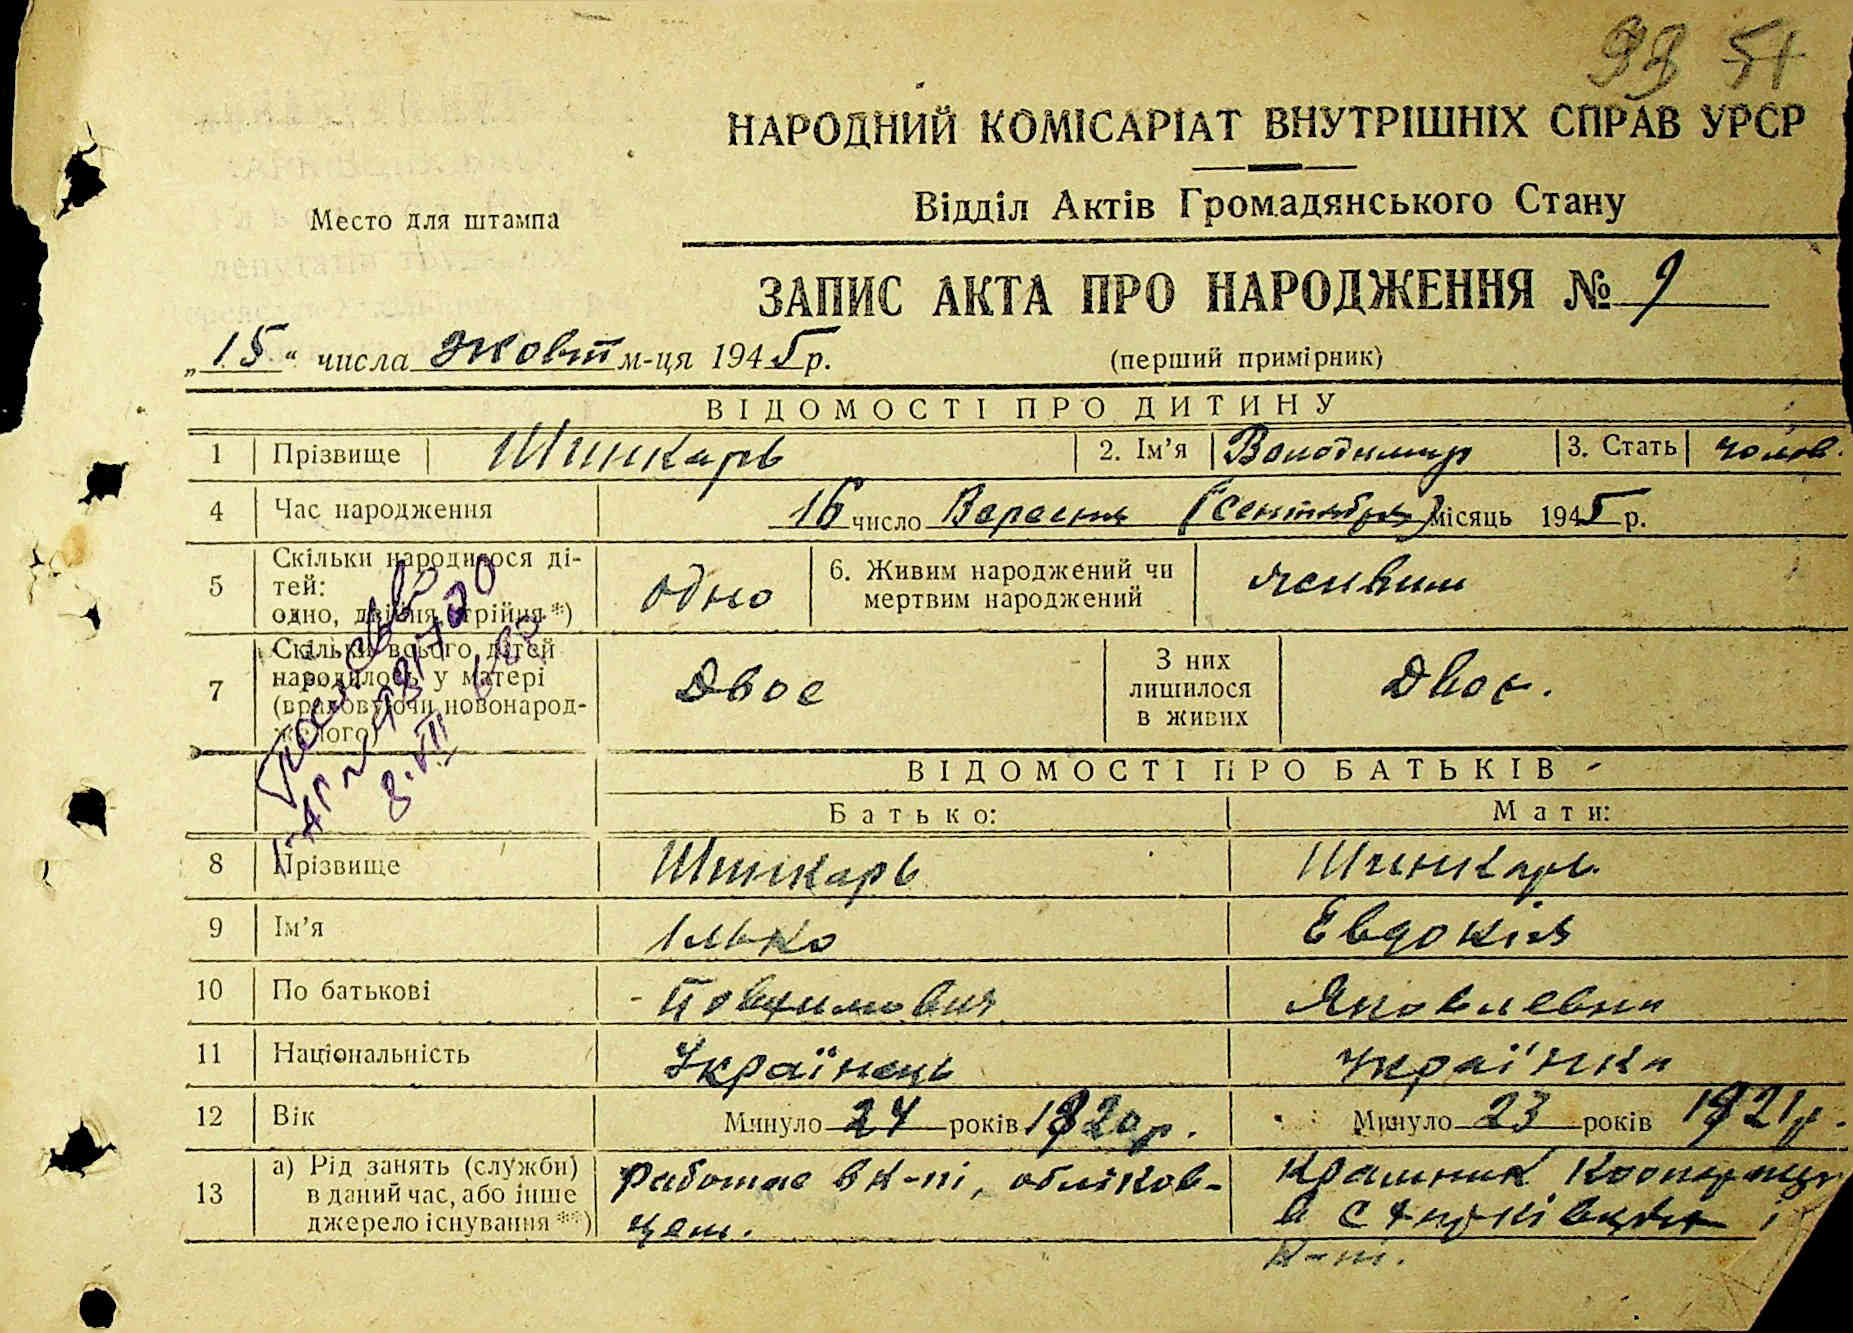 93 51
НАРОДНИЙ КОМІСАРІАТ ВНУТРІШНІХ СПРАВ УРСР
Відділ Актів Громадянського Стану
Место для штампа
ЗАПИС АКТА ПРО НАРОДЖЕННЯ № 9
„15" числа Жовт м-ця 1945 р.
(перший примірник)
ВІДОМОСТІ ПРО ДИТИНУ
1 Прізвище Шинкарь 2. Ім'я Володимир 3. Стать чолов.
4 Час народження 16 число Вересня (сентября) місяць 1945 р.
5 Скільки народилося ді-
тей:
одно, двійня, трійня *) одно 6. Живим народжений чи
мертвим народжений живим
7 Скільки всього дітей
народилось у матері
(враховуючи новонарод-
женого) Двое З них
лишилося
в живих Двое.
8.VII
ВІДОМОСТІ ПРО БАТЬКІВ
Батько: Мати:
8 Прізвище Шинкарь Шинкарь
9 Ім'я Ілько Евдокія
10 По батькові Яковлевна
11 Національність Українець Українка
12 Вік Минуло 24 років 1920 р. Минуло 23 років 1921 р.
13 а) Рід занять (служби)
в даний час, або інше
джерело існування **) Работае в к-пі, обліков-
цем. Крамник
к-пі.